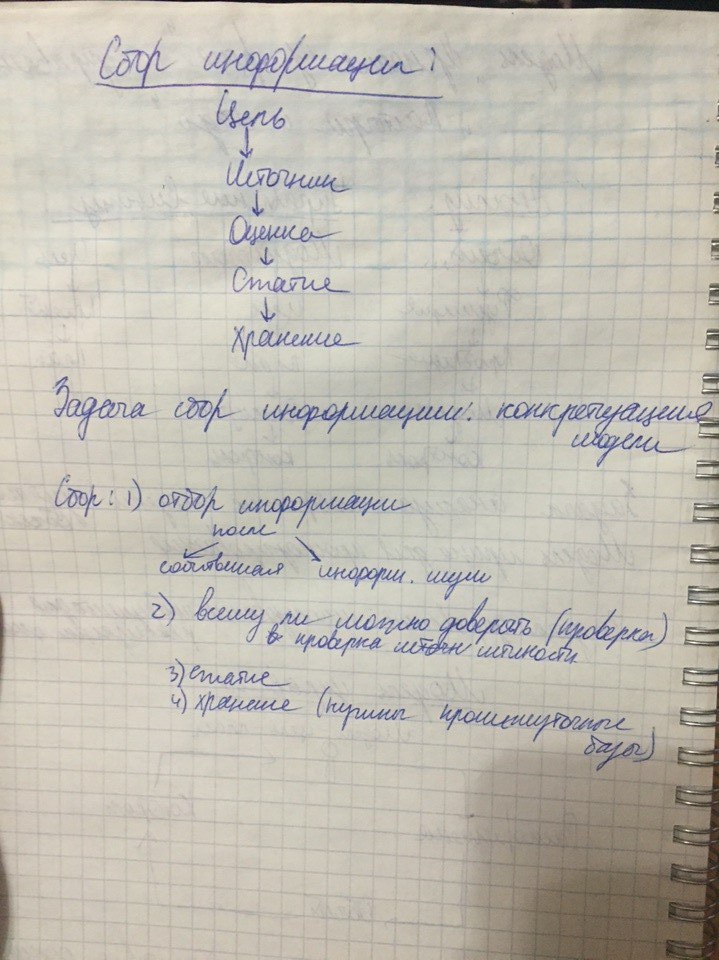 Сбор информации:
Цель
↓
Источник
↓
Оценка
↓
Сжатие
↓
Хранение
Задача сбор информации: конкретизация
модели
Сбор: 1) отбор информации
после
собственная информ. шум
2) всему ли можно доверять (проверка)
проверка источн истинности
3) сжатие
4) хранение (нужны промежуточные
базы)